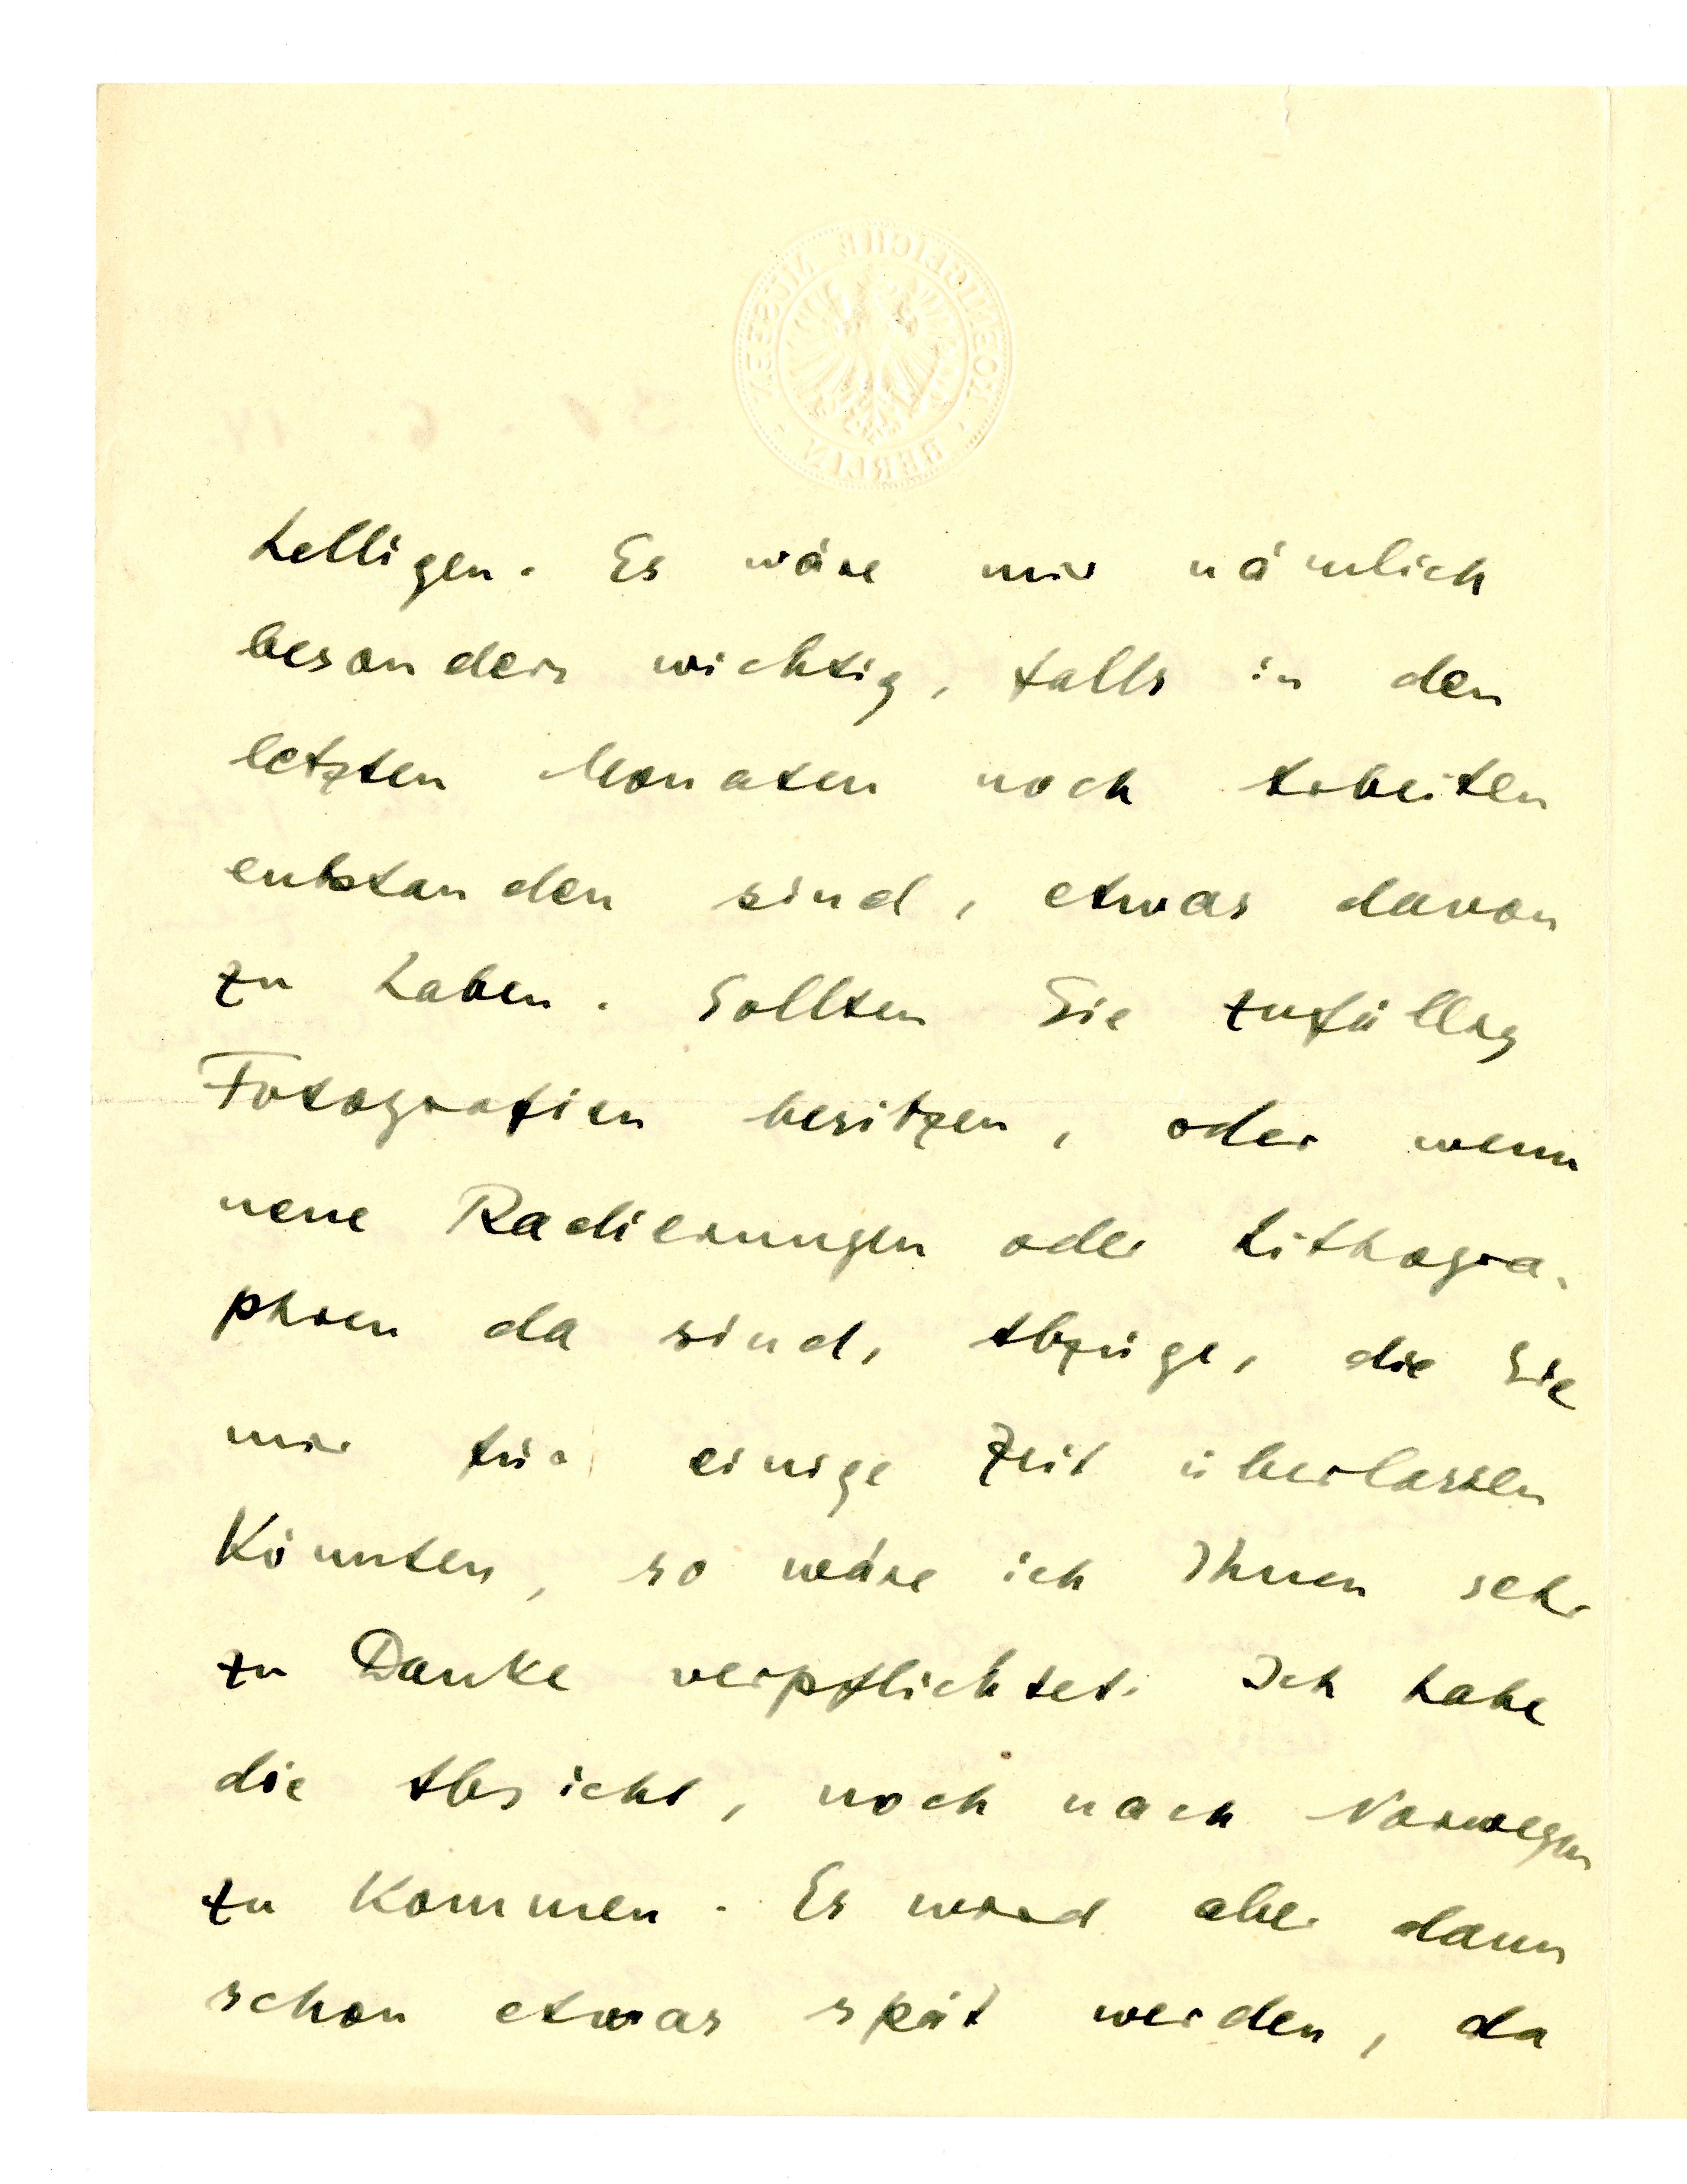 KOENIGLICHE MUSEEN
BERLIN
helligen. Es wäre mir nämlich
besonders wichtig, falls in den
letzten Monaten noch Arbeiten
entstanden sind, etwas davon
zu haben. Sollten Sie zufällig
Fotografien besitzen, oder wenn
neue Radierungen oder Lithogra-
phien da sind, Abzüge, die Sie
mir für einige Zeit überlassen
Könnten, so wäre ich Ihnen sehr
zu Danke verpflichtet. Ich habe
die Absicht, noch nach Norwegen
zu Kommen. Es wird aber dann
schon etwas spät werden, da